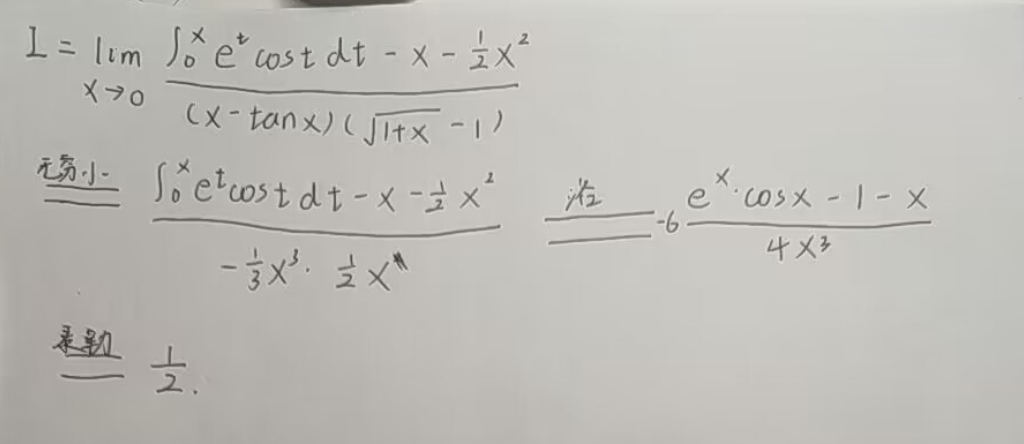 I = lim x→0 (∫₀ˣ eᵗ cost dt - x - ½x²) / ((x - tanx)(√(1+x) - 1))
无穷小 (∫₀ˣ eᵗ cost dt - x - ½x²) / (-⅓x³ · ½x) 洛 -6 (eˣ · cosx - 1 - x) / (4x³)
泰勒 1/2.